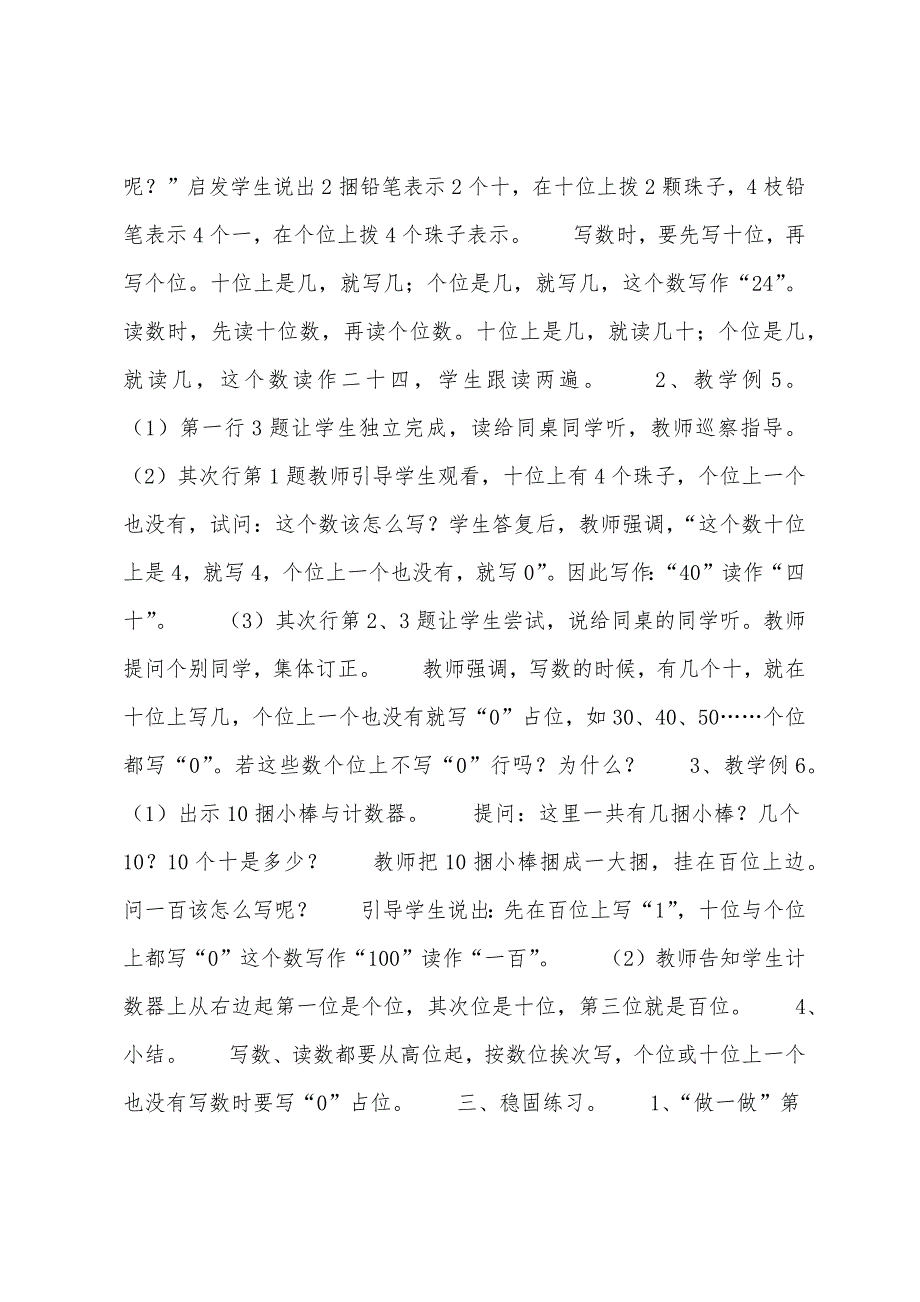 呢？”启发学生说出2捆铅笔表示2个十，在十位上拨2颗珠子，4枝铅
笔表示4个一，在个位上拨4个珠子表示。　　写数时，要先写十位，再
写个位。十位上是几，就写几；个位是几，就写几，这个数写作“24”。
读数时，先读十位数，再读个位数。十位上是几，就读几十；个位是几，
就读几，这个数读作二十四，学生跟读两遍。　　2、教学例5。
（1）第一行3题让学生独立完成，读给同桌同学听，教师巡察指导。
（2）其次行第1题教师引导学生观看，十位上有4个珠子，个位上一个
也没有，试问：这个数该怎么写？学生答复后，教师强调，“这个数十位
上是4，就写4，个位上一个也没有，就写0”。因此写作：“40”读作“四
十”。　　（3）其次行第2、3题让学生尝试，说给同桌的同学听。教师
提问个别同学，集体订正。　　教师强调，写数的时候，有几个十，就在
十位上写几，个位上一个也没有就写“0”占位，如30、40、50……个位
都写“0”。若这些数个位上不写“0”行吗？为什么？　　3、教学例6。
（1）出示10捆小棒与计数器。　　提问：这里一共有几捆小棒？几个
10？10个十是多少？　　教师把10捆小棒捆成一大捆，挂在百位上边。
问一百该怎么写呢？　　引导学生说出：先在百位上写“1”，十位与个位
上都写“0”这个数写作“100”读作“一百”。　　（2）教师告知学生计
数器上从右边起第一位是个位，其次位是十位，第三位就是百位。　　4、
小结。　　写数、读数都要从高位起，按数位挨次写，个位或十位上一个
也没有写数时要写“0”占位。　　三、稳固练习。　　1、“做一做”第